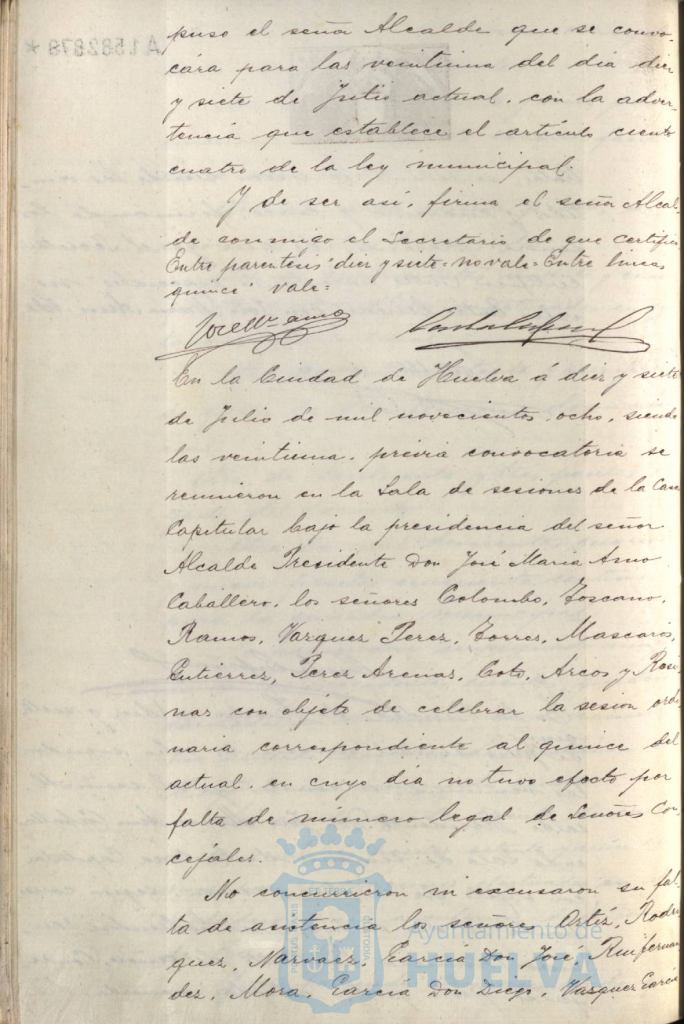 puso el señor Alcalde que se convo-
cára para las veintiuna del dia diez
y siete de Julio actual, con la adver-
tencia que establece el artículo ciento
cuatro de la ley municipal.
Y de ser así, firma el señor Alcal-
de conmigo el Secretario de que certifico
Entre parentesis "diez y siete" = no vale = Entre lineas
quince vale =
En la Ciudad de Huelva á diez y siete
de Julio de mil novecientos ocho, siendo
las veintiuna, prévia convocatoria se
reunieron en la Sala de sesiones de la Casa
Capitular bajo la presidencia del señor
Alcalde Presidente Don José Maria Amo
Caballero, los señores Colombo, Toscano,
Ramos, Vazquez Perez, Torres, Mascarós,
Gutiérrez, Perez Arenas, Coto, Arcos y Rosi-
nas con objeto de celebrar la sesion ordi-
naria correspondiente al quince del
actual, en cuyo dia no tuvo efecto por
falta de número legal de Señores Con-
cejales.
No concurrieron ni excusaron su fal-
ta de asistencia los señores Ortiz, Rodri-
guez, Narvaez, Garcia Don José, Ruifernan
dez, Mora, Garcia Don Diego, Vazquez Garcia
A1582878 *
Ayuntamiento de
HUELVA